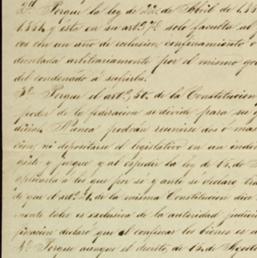 2ª Porque la ley de 22 de Abril de 18
1824 y esta en su artº 7º solo faculta al
vos con un año de reclusion, confinamiento o
decretada arbitrariamente por el mismo go
del condenado a sufrirla.
3ª Porque el artº 50 de la Constitucion
poder de la federacion se divide para su
dicial. Nunca podrán reunirse dos o mas
cion, ni depositarse el legislativo en un indi
este y porque al expedir la ley de 14 de
aplicarla a los que por si y ante si declaro
de que el artº 21 de la misma Constitucion dice
mente tales es exclusiva de la autoridad judici
declaró que al confiscar los bienes es
4ª Porque aunque el decreto de 14 de Agosto